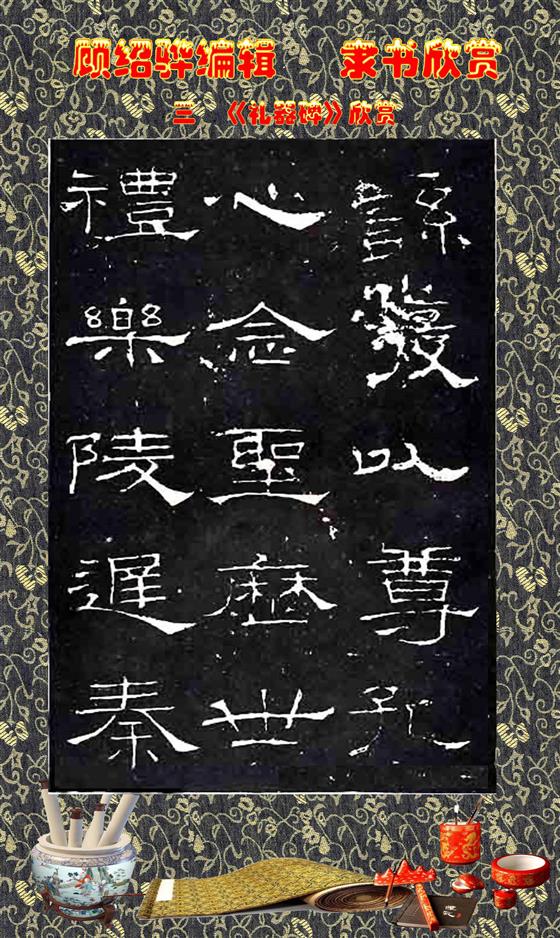 顾绍骅编辑 隶书欣赏
三 《礼器碑》欣赏
繇發以尊孔
心念聖歷世
禮樂陵遲秦